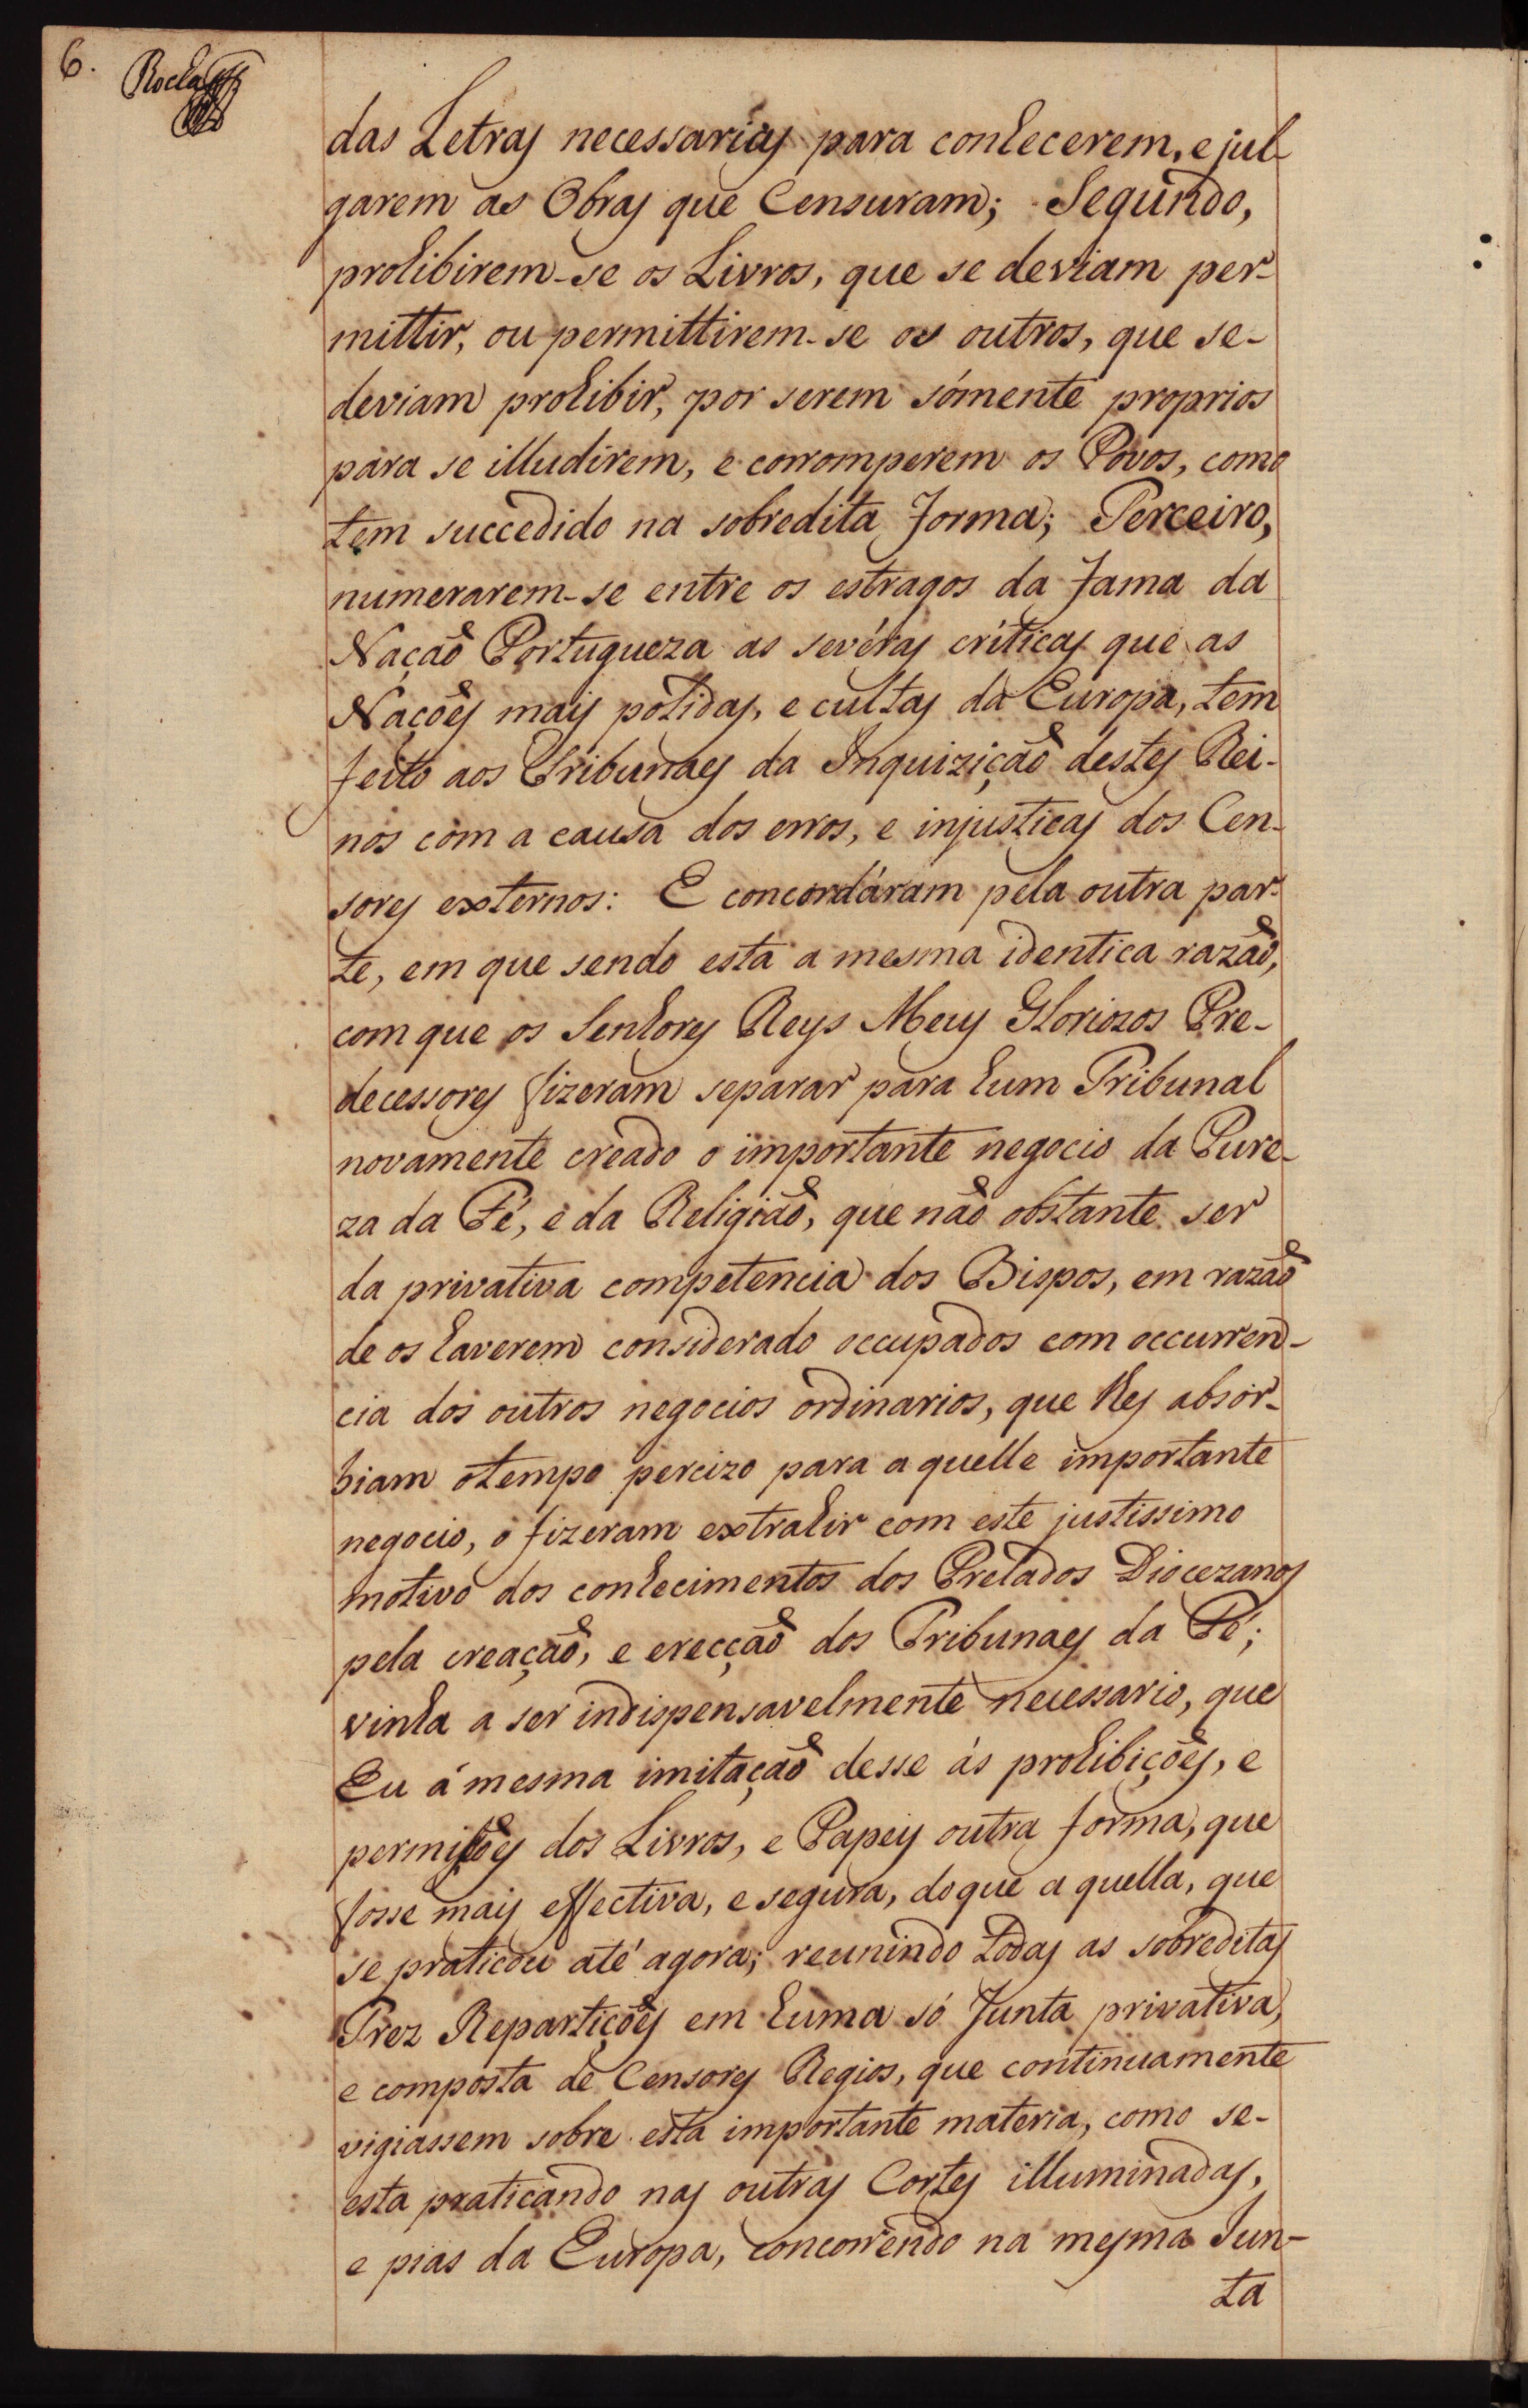 6.
Rocha
das Letras necessarias para conhecerem, e jul-
garem as Obras que Censuram; Segundo,
prohibirem-se os Livros, que se deviam per-
mittir, ou permittirem-se os outros, que se-
deviam prohibir, por serem sómente proprios
para se illudirem, e corromperem os Povos, como
tem succedido na sobredita forma; Terceiro,
numerarem-se entre os estragos da fama da
Nação Portugueza as sevéras críticas que as
Nações mais polidas, e cultas da Europa, tem
feito aos Tribunaes da Inquizição destes Rei-
nos com a causa dos erros, e injusticas dos Cen-
sores externos: E concordáram pela outra par-
te, em que sendo esta a mesma identica razão,
com que os Senhores Reys Meus Gloriozos Pre-
decessores fizeram separar para hum Tribunal
novamente creado o importante negocio da Pure-
za da Fé, e da Religião, que não obstante ser
da privativa competencia dos Bispos, em razão
de os haverem considerado occupados com occurren-
cia dos outros negocios ordinarios, que lhes absor-
biam o tempo percizo para aquelle importante
negocio, o fizeram extrahir com este justissimo
motivo dos conhecimentos dos Prelados Diocezanos
pela creação, e erecção dos Tribunaes da Fé;
vinha a ser indispensavelmente necessario, que
Eu á mesma imitação desse ás prohibições, e
permissões dos Livros, e Papeis outra forma, que
fosse mais effectiva, e segura, do que a quella, que
se praticou até agora; reunindo todas as sobreditas
Trez Repartições em huma só Junta privativa,
e composta de Censores Regios, que continuamente
vigiassem sobre esta importante materia, como se-
esta praticando nas outras Cortes illuminadas,
e pias da Europa, concorrendo na mesma Jun-
ta